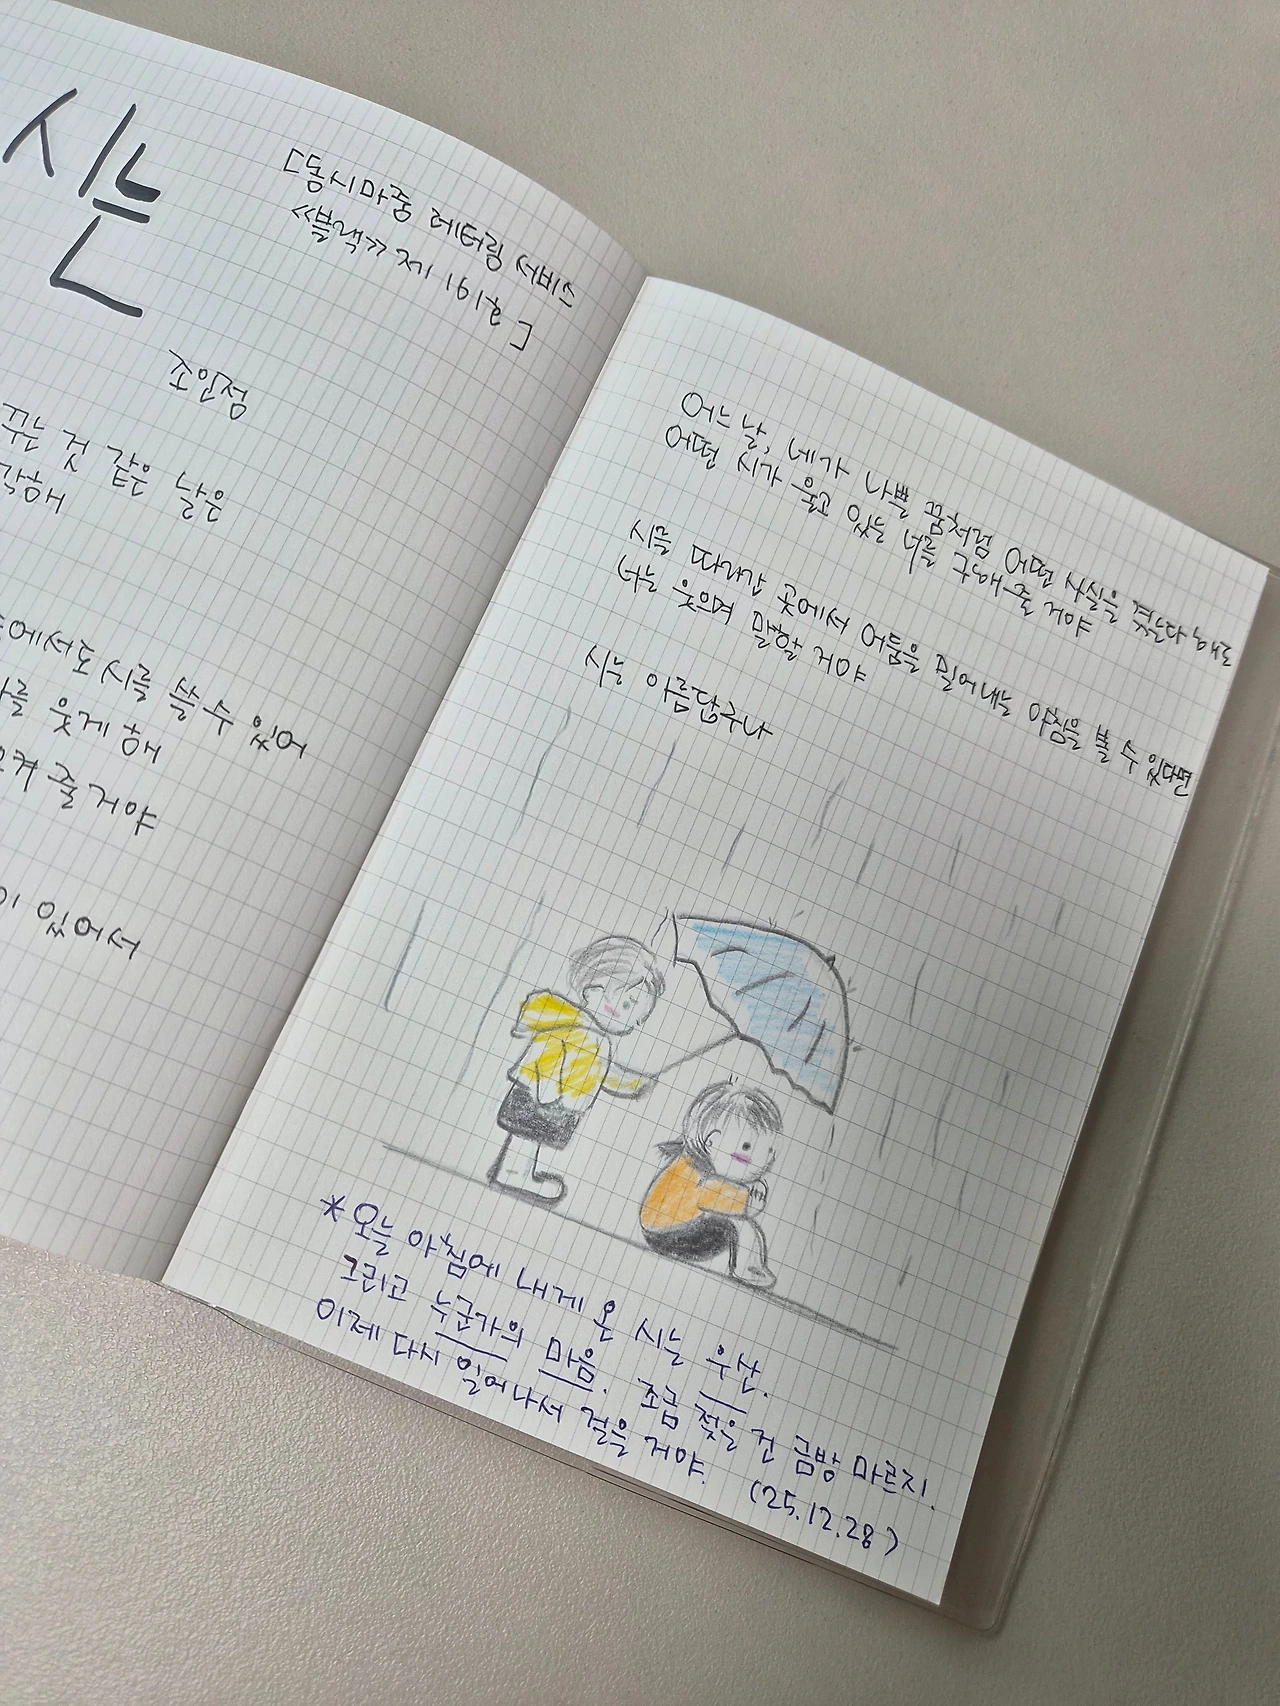 시는
[동시마중 레터링 서비스
《블랙》 제 161호]
조인정
꾸는 것 같은 날은
각해
에서도 시를 쓸 수 있어
를 웃게 해
켜 줄 거야
이 있어서
어느 날, 네가 나쁜 꿈처럼 어떤 사실을 겪는다 해도
어떤 시가 울고 있는 너를 구해 줄 거야
시를 따라간 곳에서 어둠을 밀어내는 아침을 볼 수 있다면
너는 웃으며 말할 거야
시는 아름답구나
* 오늘 아침에 내게 온 시는 우산.
그리고 누군가의 마음. 조금 젖은 건 금방 마르지.
이제 다시 일어나서 걸을 거야. (25.12.28)